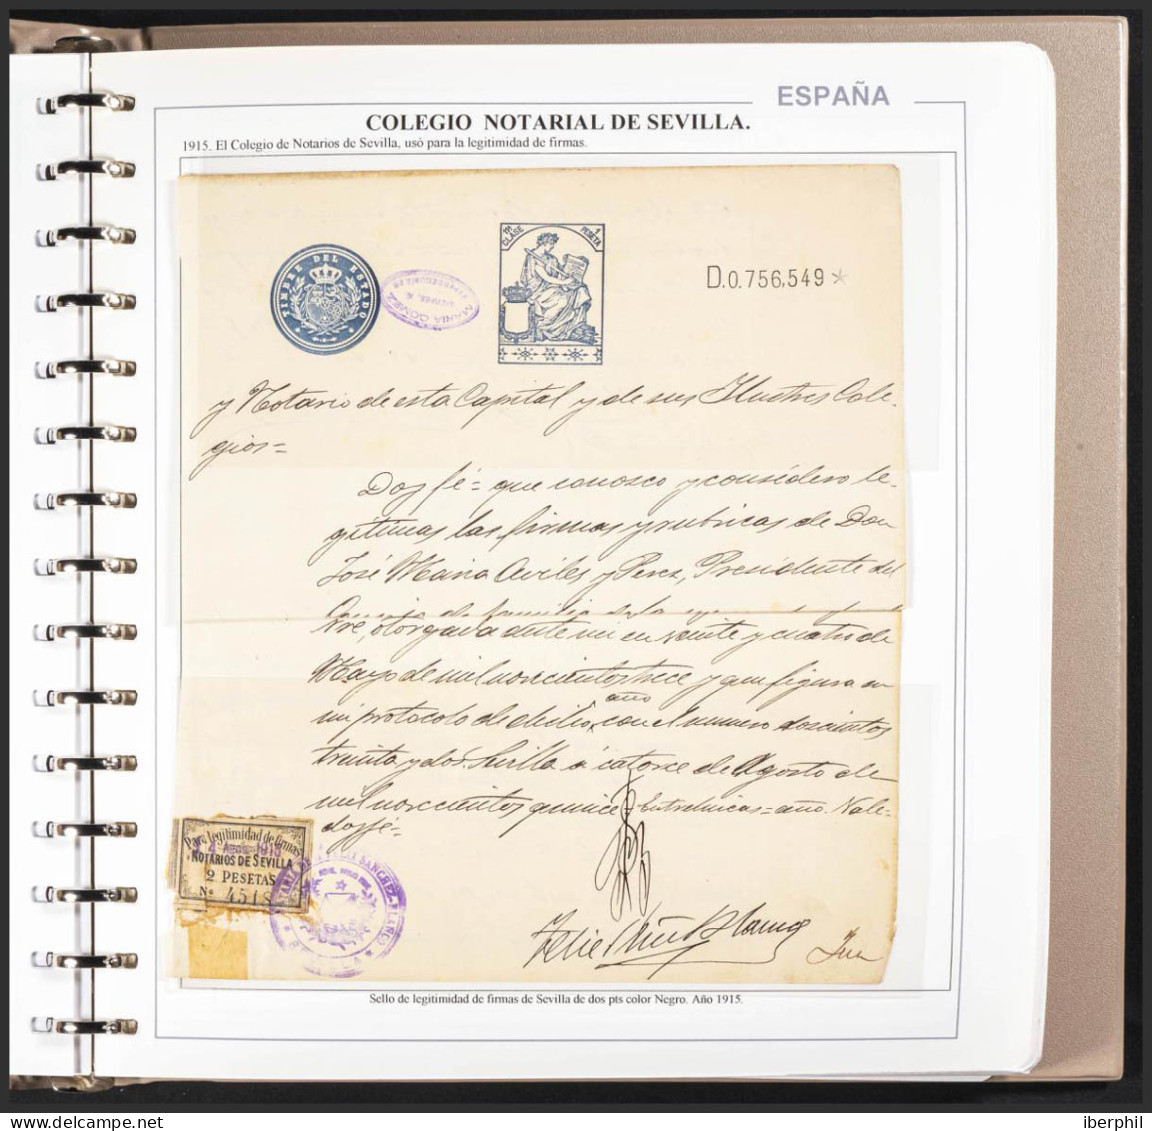 ESPAÑA
COLEGIO NOTARIAL DE SEVILLA.
1915. El Colegio de Notarios de Sevilla, usó para la legitimidad de firmas.
TIMBRE DEL ESTADO
MARIA GOMEZ
11ª CLASE 1 PESETA
D.0.756,549*
y Notario de esta Capital y de sus Ilustres Cole-
gios=
Doy fé= que conosco y considero le-
gitimas las firmas y rubricas de Don
José Maria Aviles y Perez, Presidente del
Consejo de familia de la
otorgava ante mi en veinte y cuatro de
Mayo de mil novecientos trece y que figura en
año
mi protocolo de dicho, con el numero doscientos
treinta y dos. Sevilla á catorce de Agosto de
mil novecientos quince= Entrelineas= año. Vale-
doy fé=
Para legitimidad de firmas
AGO. 1915
NOTARIOS DE SEVILLA
2 PESETAS
Nº 4518
SANCHEZ-BLANCO
Felix Sánchez Blanco
Sello de legitimidad de firmas de Sevilla de dos pts color Negro. Año 1915.
iberphil